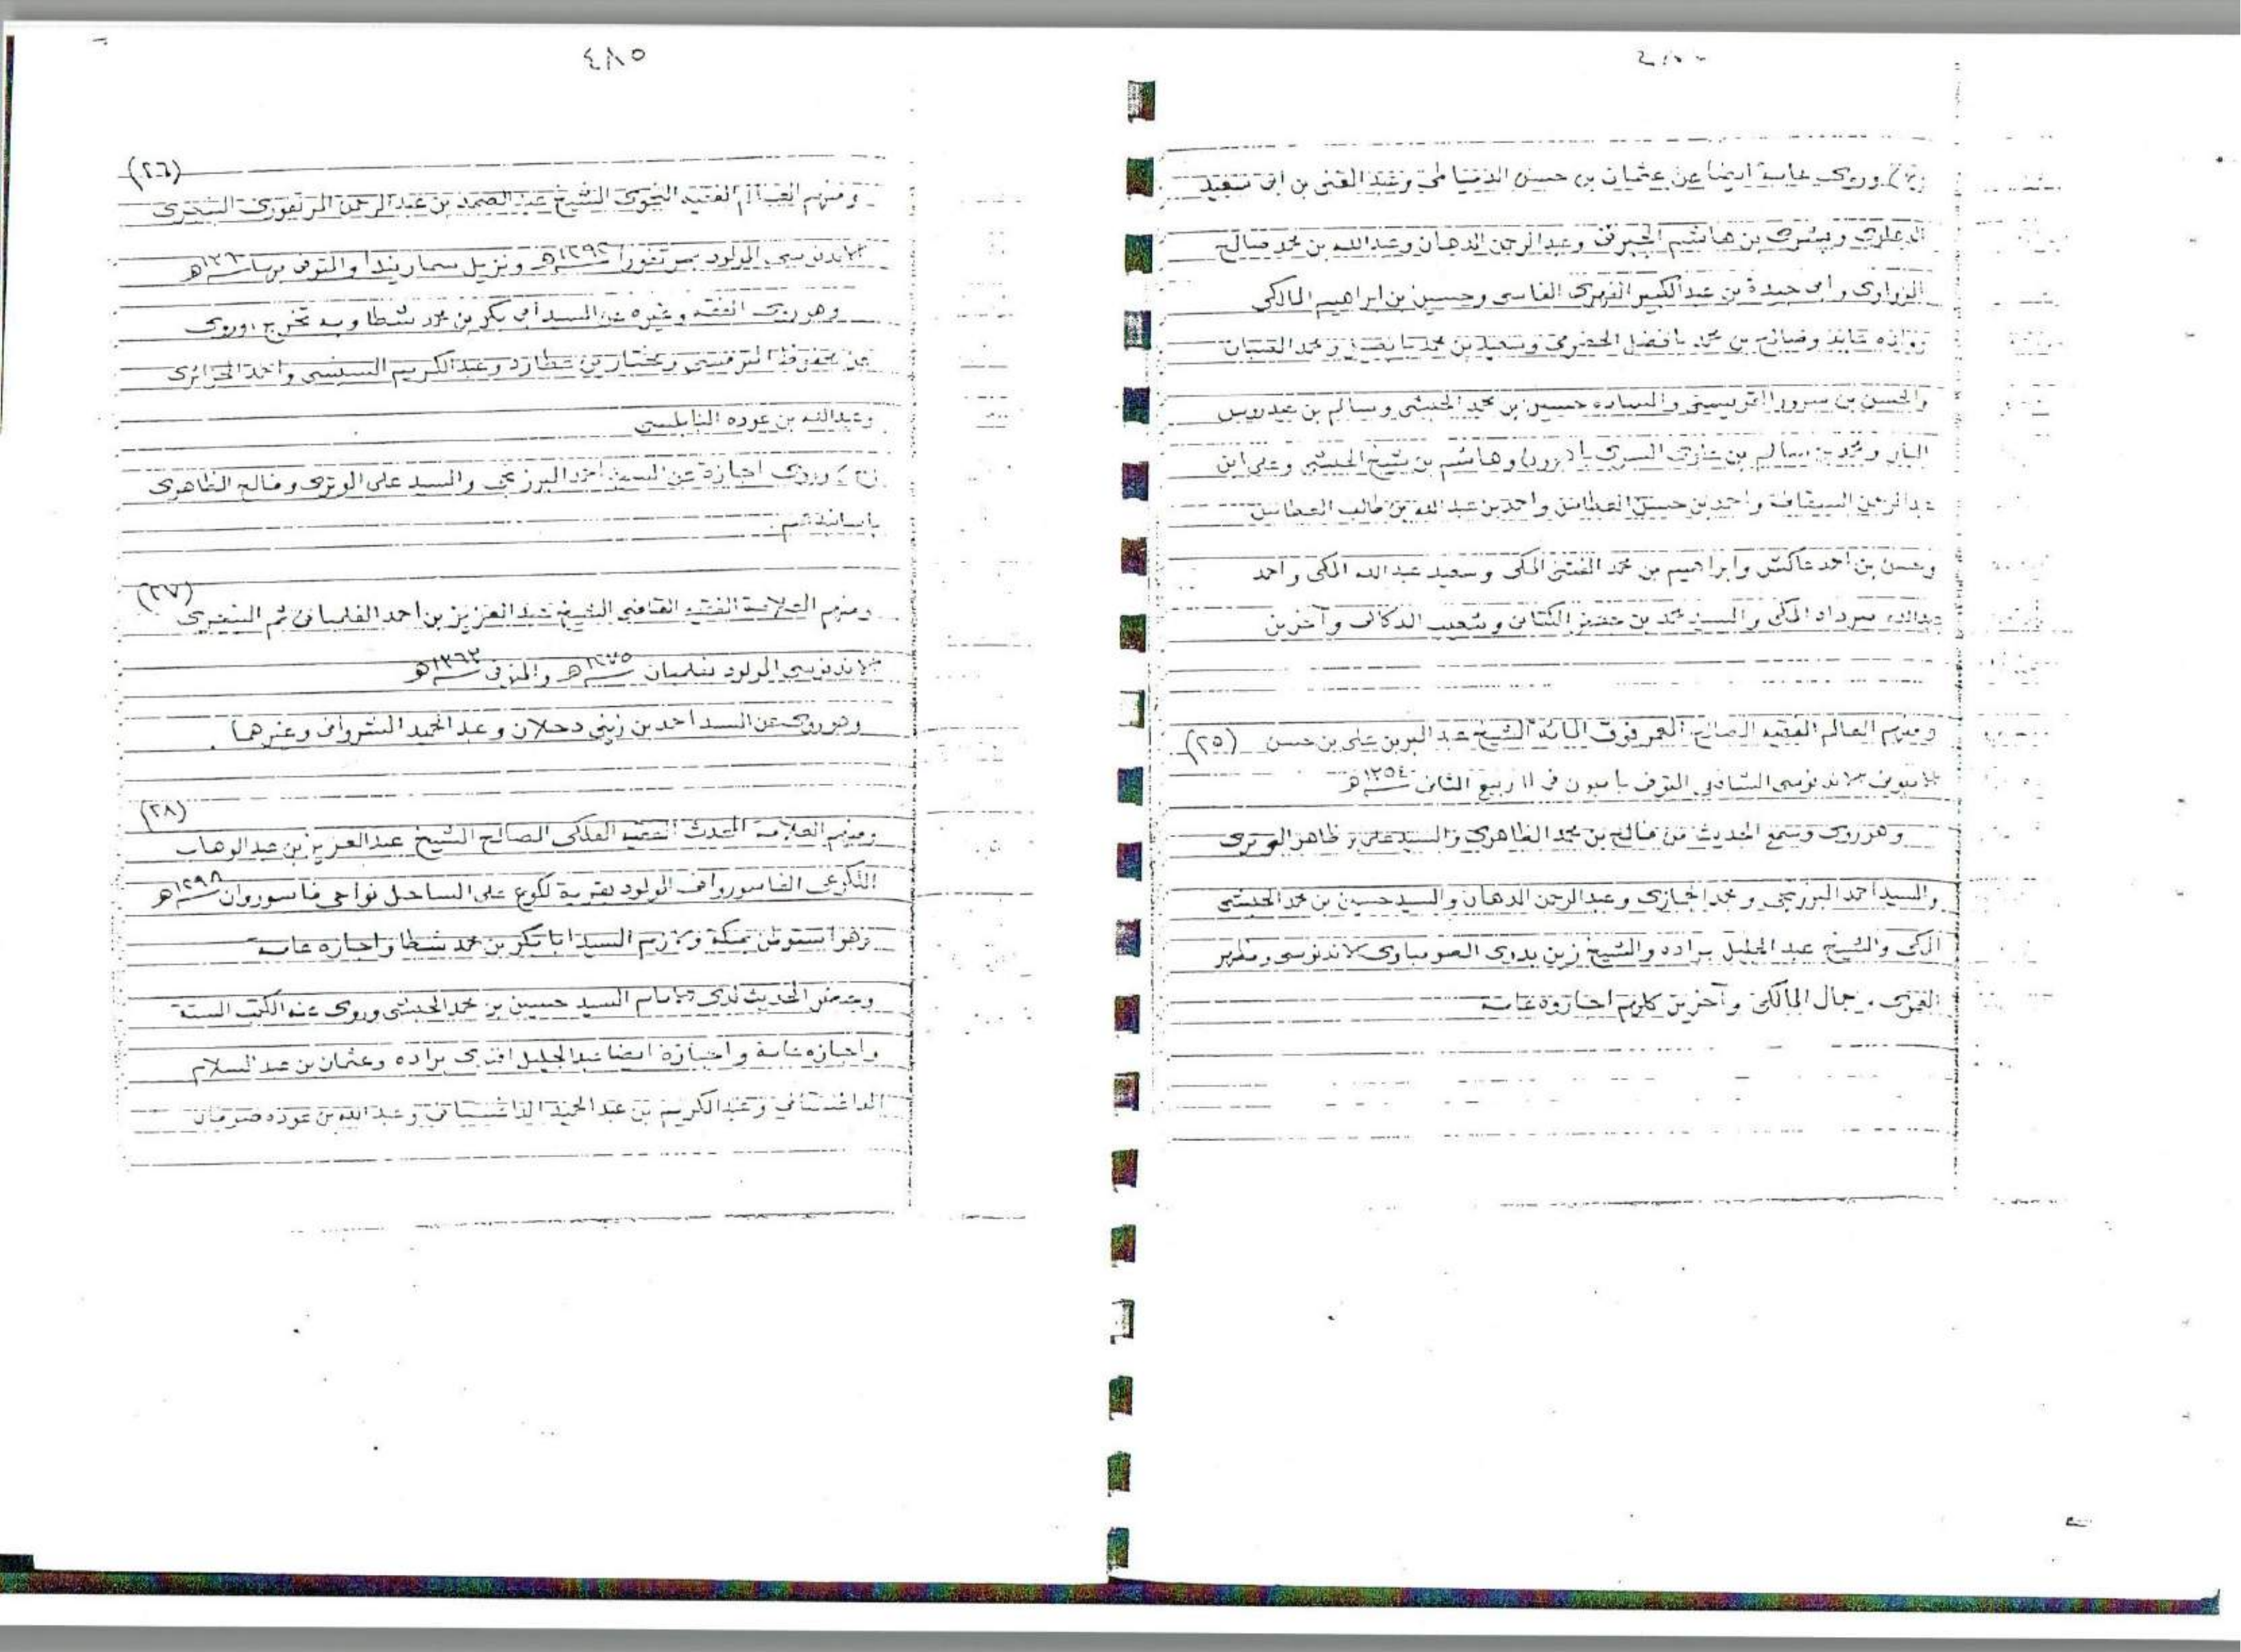 وروى عامة ايضا عن عثمان بن حسن الدمياطي وعبد الغني بن ابى سعيد
الدهلوى ويشرى بن هاشم الجبرتى وعبد الرحمن الدهان وعبد الله بن محمد صالح
الزواوى وابى جيدة بن عبد الكبير الفهرى الفاسى وحسين بن ابراهيم المالكى
وصالح بن محمد بافضل الحضرمى وسعيد بن محمد بابصيل ومحمد
والحسن بن والساده حسين بن محمد الحبشى وسالم بن عيدروس
البار ومحمد بن سالم بن السرى باهرون وهاشم بن شيخ الحبشى وعلى ابن
عبد الرحمن السقاف واحمد بن حسن العطاس واحمد بن عبد الله بن طالب العطاس
وحسن بن احمد عاكش وابراهيم بن محمد الفتنى المكى وسعيد عبد الله المكى واحمد
عبد الله مرداد المكى والسيد محمد بن جعفر الكتانى وشعيب الدكالى وآخرين
ومنهم العالم الفقيه الصالح المعمر فوق المائة الشيخ عبد البر بن على بن حسن (٢٥)
الاندونوسى الشافعى المتوفى فى ١١ ربيع الثانى ١٣٥٤هـ
وهو روى وسمع الحديث من فالح بن محمد الظاهرى والسيد على بن ظاهر الوترى
والسيد احمد البرزنجى ومحمد الحجازى وعبد الرحمن الدهان والسيد حسين بن محمد الحبشى
المكى والشيخ عبد الجليل براده والشيخ زين بدوى الصومباوى الاندنوسى
جمال المالكى وآخرين كلهم اجازوه عامة
٤٨٥
(٢٦)
ومنهم العالم الفقيه النحوى الشيخ عبد الصمد بن عبد الرحمن المرتفورى البنجرى
الاندونسى المولود بمرتفورا ١٢٩٢هـ ونزيل سماريندا والمتوفى بها
وهو روى الفقه وغيره عن السيد أبى بكر بن محمد شطا وبه تخرج وروى
عن محفوظ الترمسى ومختار بن عطارد وعبد الكريم السمبسى واحمد الجزائرى
وعبد الله بن عوده النابلسى
وروى اجازة عن السيد احمد البرزنجى والسيد على الوترى وفالح الظاهرى
بأسانيدهم
(٢٧)
ومنهم العلامة الفقيه القاضى الشيخ عبد العزيز بن احمد الفلمبانى ثم البنجرى
الاندنوسى المولود بفلمبان ١٢٧٥هـ والمتوفى ١٣٦٢هـ
وهو روى عن السيد احمد بن زينى دحلان وعبد الحميد الشروانى وغيرهما .
(٢٨)
ومنهم العلامة المحدث الفقيه الفلكى الصالح الشيخ عبد العزيز بن عبد الوهاب
اللكوعى الفاسوروانى المولود بقرية لكوع على الساحل نواحى فاسوروان ١٢٩٨هـ
وهو استوطن بمكة ولازم السيد ابا بكر بن محمد شطا واجازه عامة
وحضر الحديث لدى الامام السيد حسين بن محمد الحبشى وروى عنه الكتب الستة
واجازه عامة واجازه ايضا عبد الجليل افندى براده وعثمان بن عبد السلام
الداغستانى وعبد الكريم بن عبد الحميد الداغستانى وعبد الله بن عوده صوفان